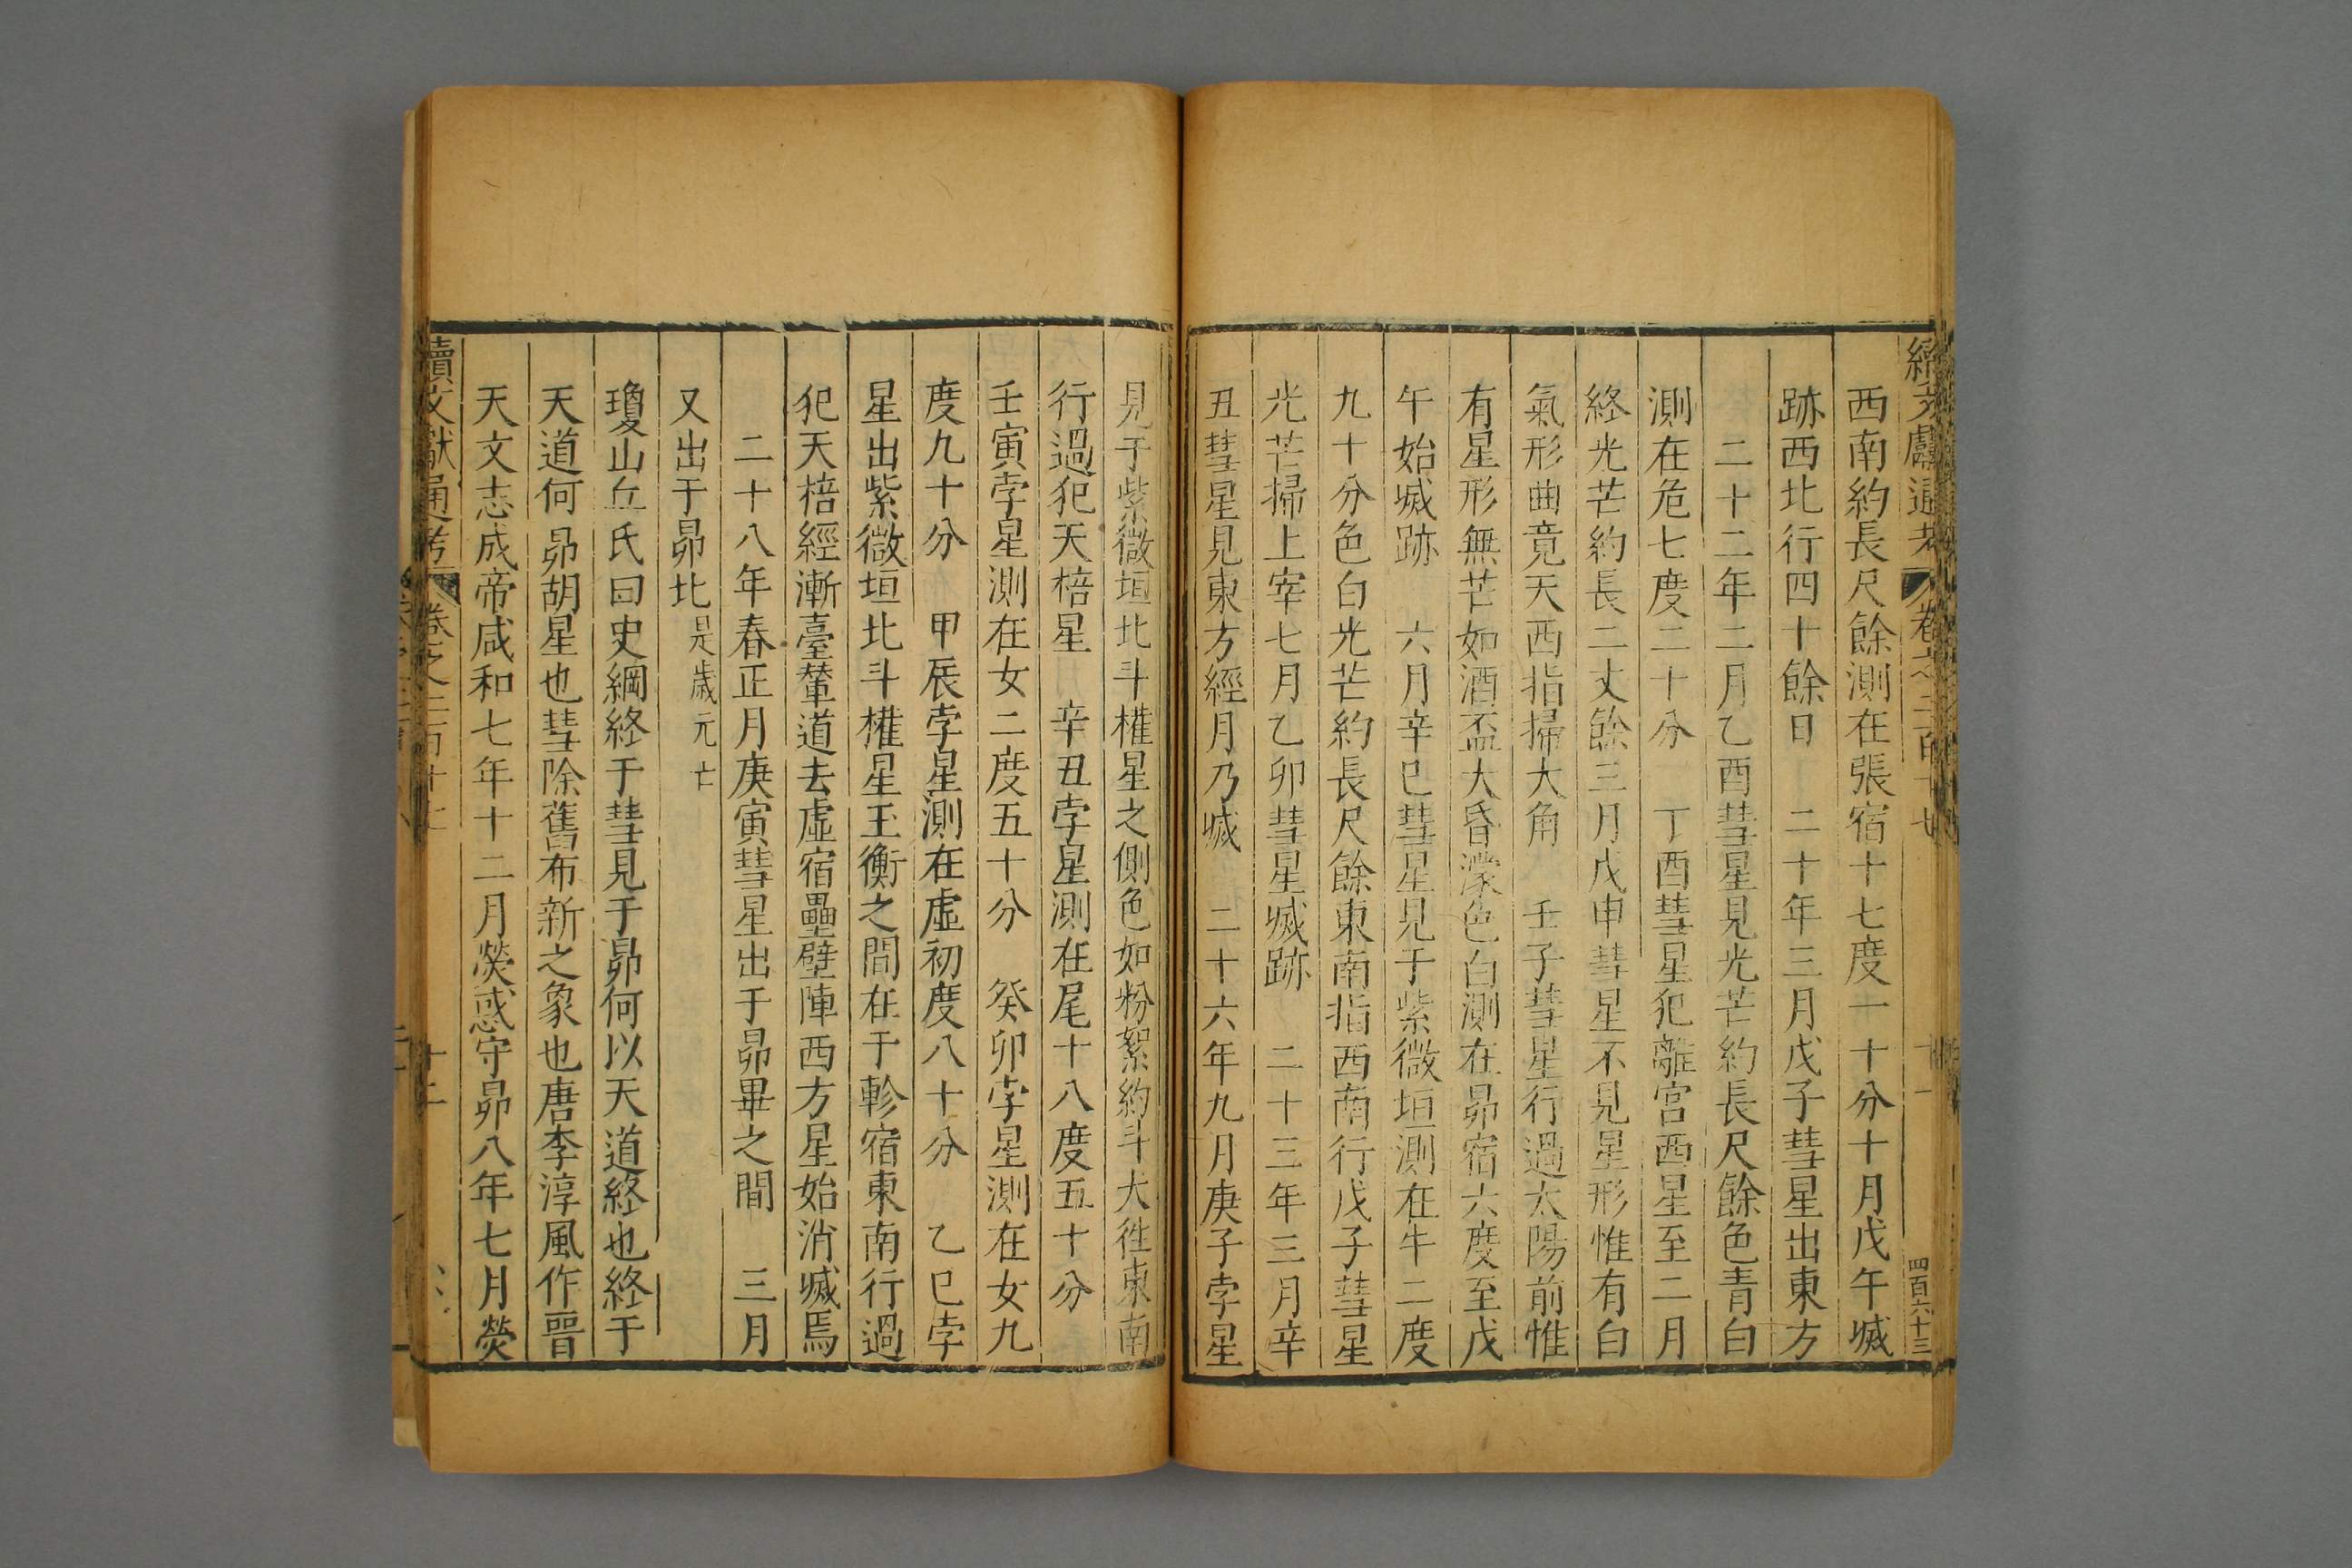 續文獻通考 卷之二百十七 十一 四百六十三
西南約長尺餘測在張宿十七度一十分十月戊午滅
跡西北行四十餘日 二十年三月戊子彗星出東方
二十二年二月乙酉彗星見光芒約長尺餘色青白
測在危七度二十分 丁酉彗星犯離宮西星至二月
終光芒約長二丈餘三月戊申彗星不見星形惟有白
氣形曲竟天西指掃大角 壬子彗星行過太陽前惟
有星形無芒如酒盃大昏濛色白測在昴宿六度至戊
午始滅跡 六月辛巳彗星見于紫微垣測在牛二度
九十分色白光芒約長尺餘東南指西南行戊子彗星
光芒掃上宰七月乙卯彗星滅跡 二十三年三月辛
丑彗星見東方經月乃滅 二十六年九月庚子孛星
見于紫微垣北斗權星之側色如粉絮約斗大徃東南
行過犯天棓星 辛丑孛星測在尾十八度五十分
壬寅孛星測在女二度五十分 癸卯孛星測在女九
度九十分 甲辰孛星測在虛初度八十分 乙巳孛
星出紫微垣北斗權星玉衡之間在于軫宿東南行過
犯天棓經漸臺輦道去虛宿壘壁陣西方星始消滅焉
二十八年春正月庚寅彗星出于昴畢之間 三月
又出于昴北是歲元亡
瓊山丘氏曰史綱終于彗見于昴何以天道終也終于
天道何昴胡星也彗除舊布新之象也唐李淳風作晉
天文志成帝咸和七年十二月熒惑守昴八年七月熒
續文獻通考 卷之二百十七 十二